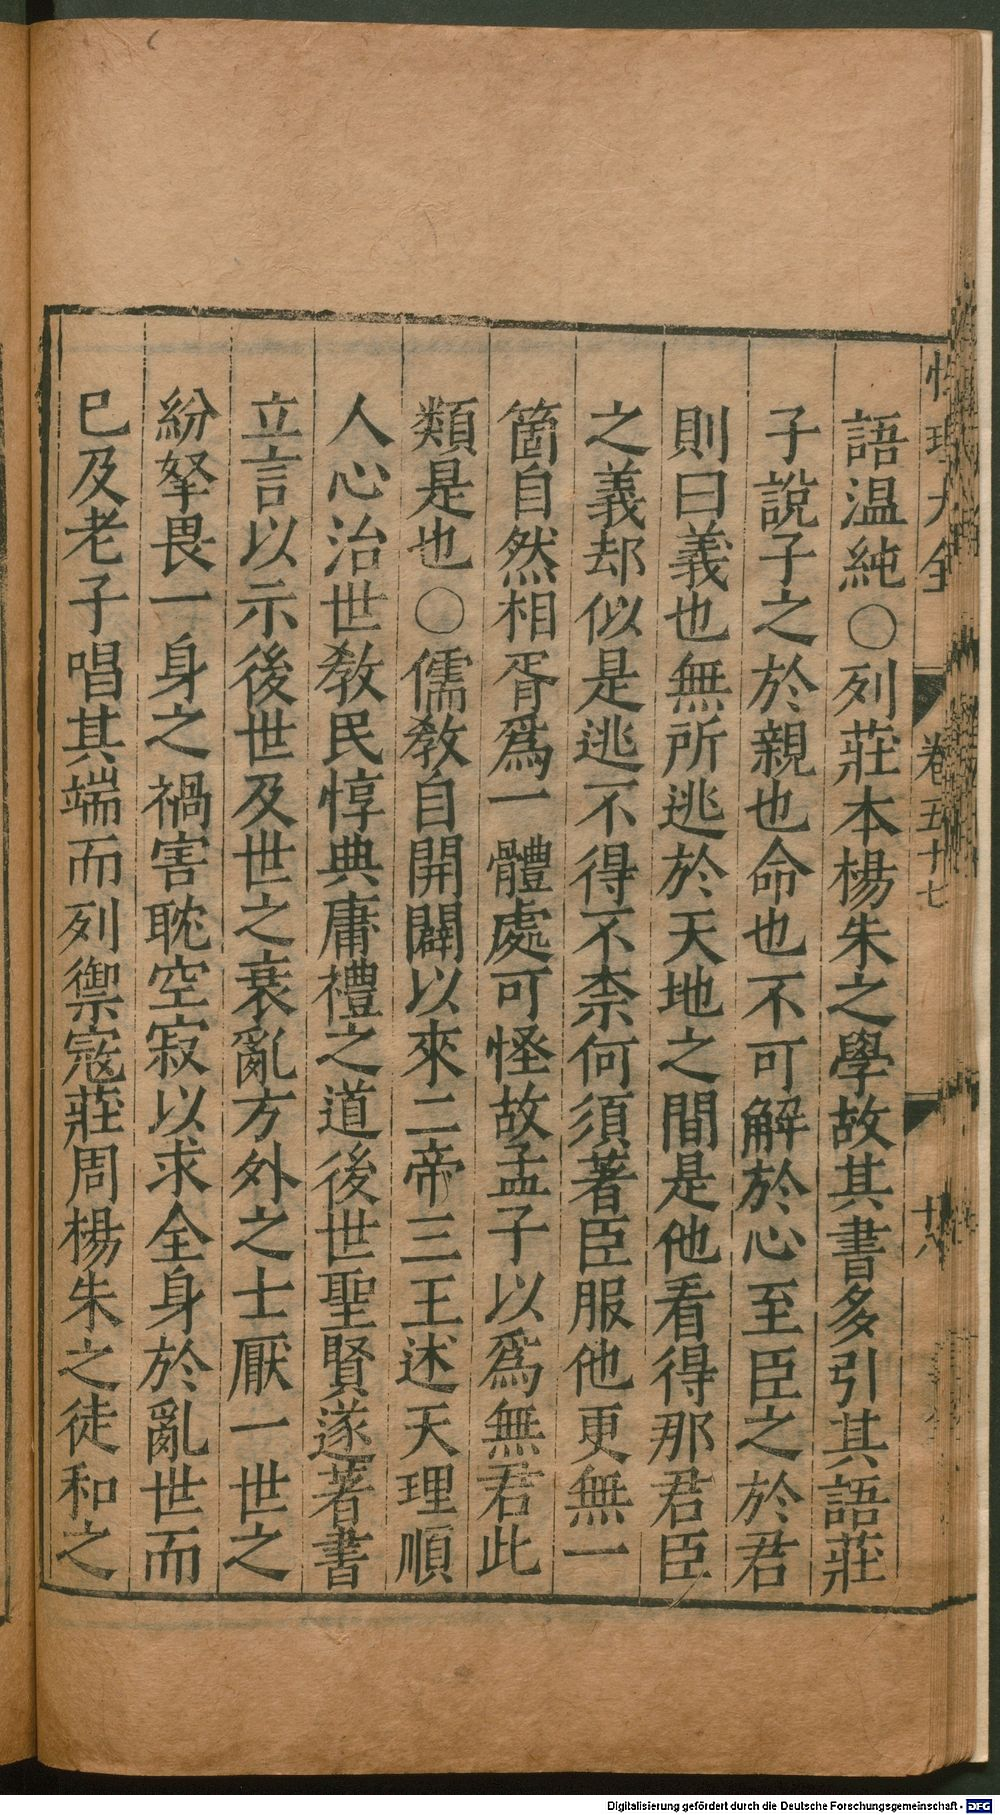 性理大全
卷五十七
十八
語温純○列莊本楊朱之學故其書多引其語莊
子說子之於親也命也不可解於心至臣之於君
則曰義也無所逃於天地之間是他看得那君臣
之義却似是逃不得不柰何須著臣服他更無一
箇自然相胥爲一體處可怪故孟子以爲無君此
類是也○儒敎自開闢以來二帝三王述天理順
人心治世敎民惇典庸禮之道後世聖賢遂著書
立言以示後世及世之衰亂方外之士厭一世之
紛拏畏一身之禍害耽空寂以求全身於亂世而
已及老子唱其端而列禦寇莊周楊朱之徒和之
Digitalisierung gefördert durch die Deutsche Forschungsgemeinschaft - DFG